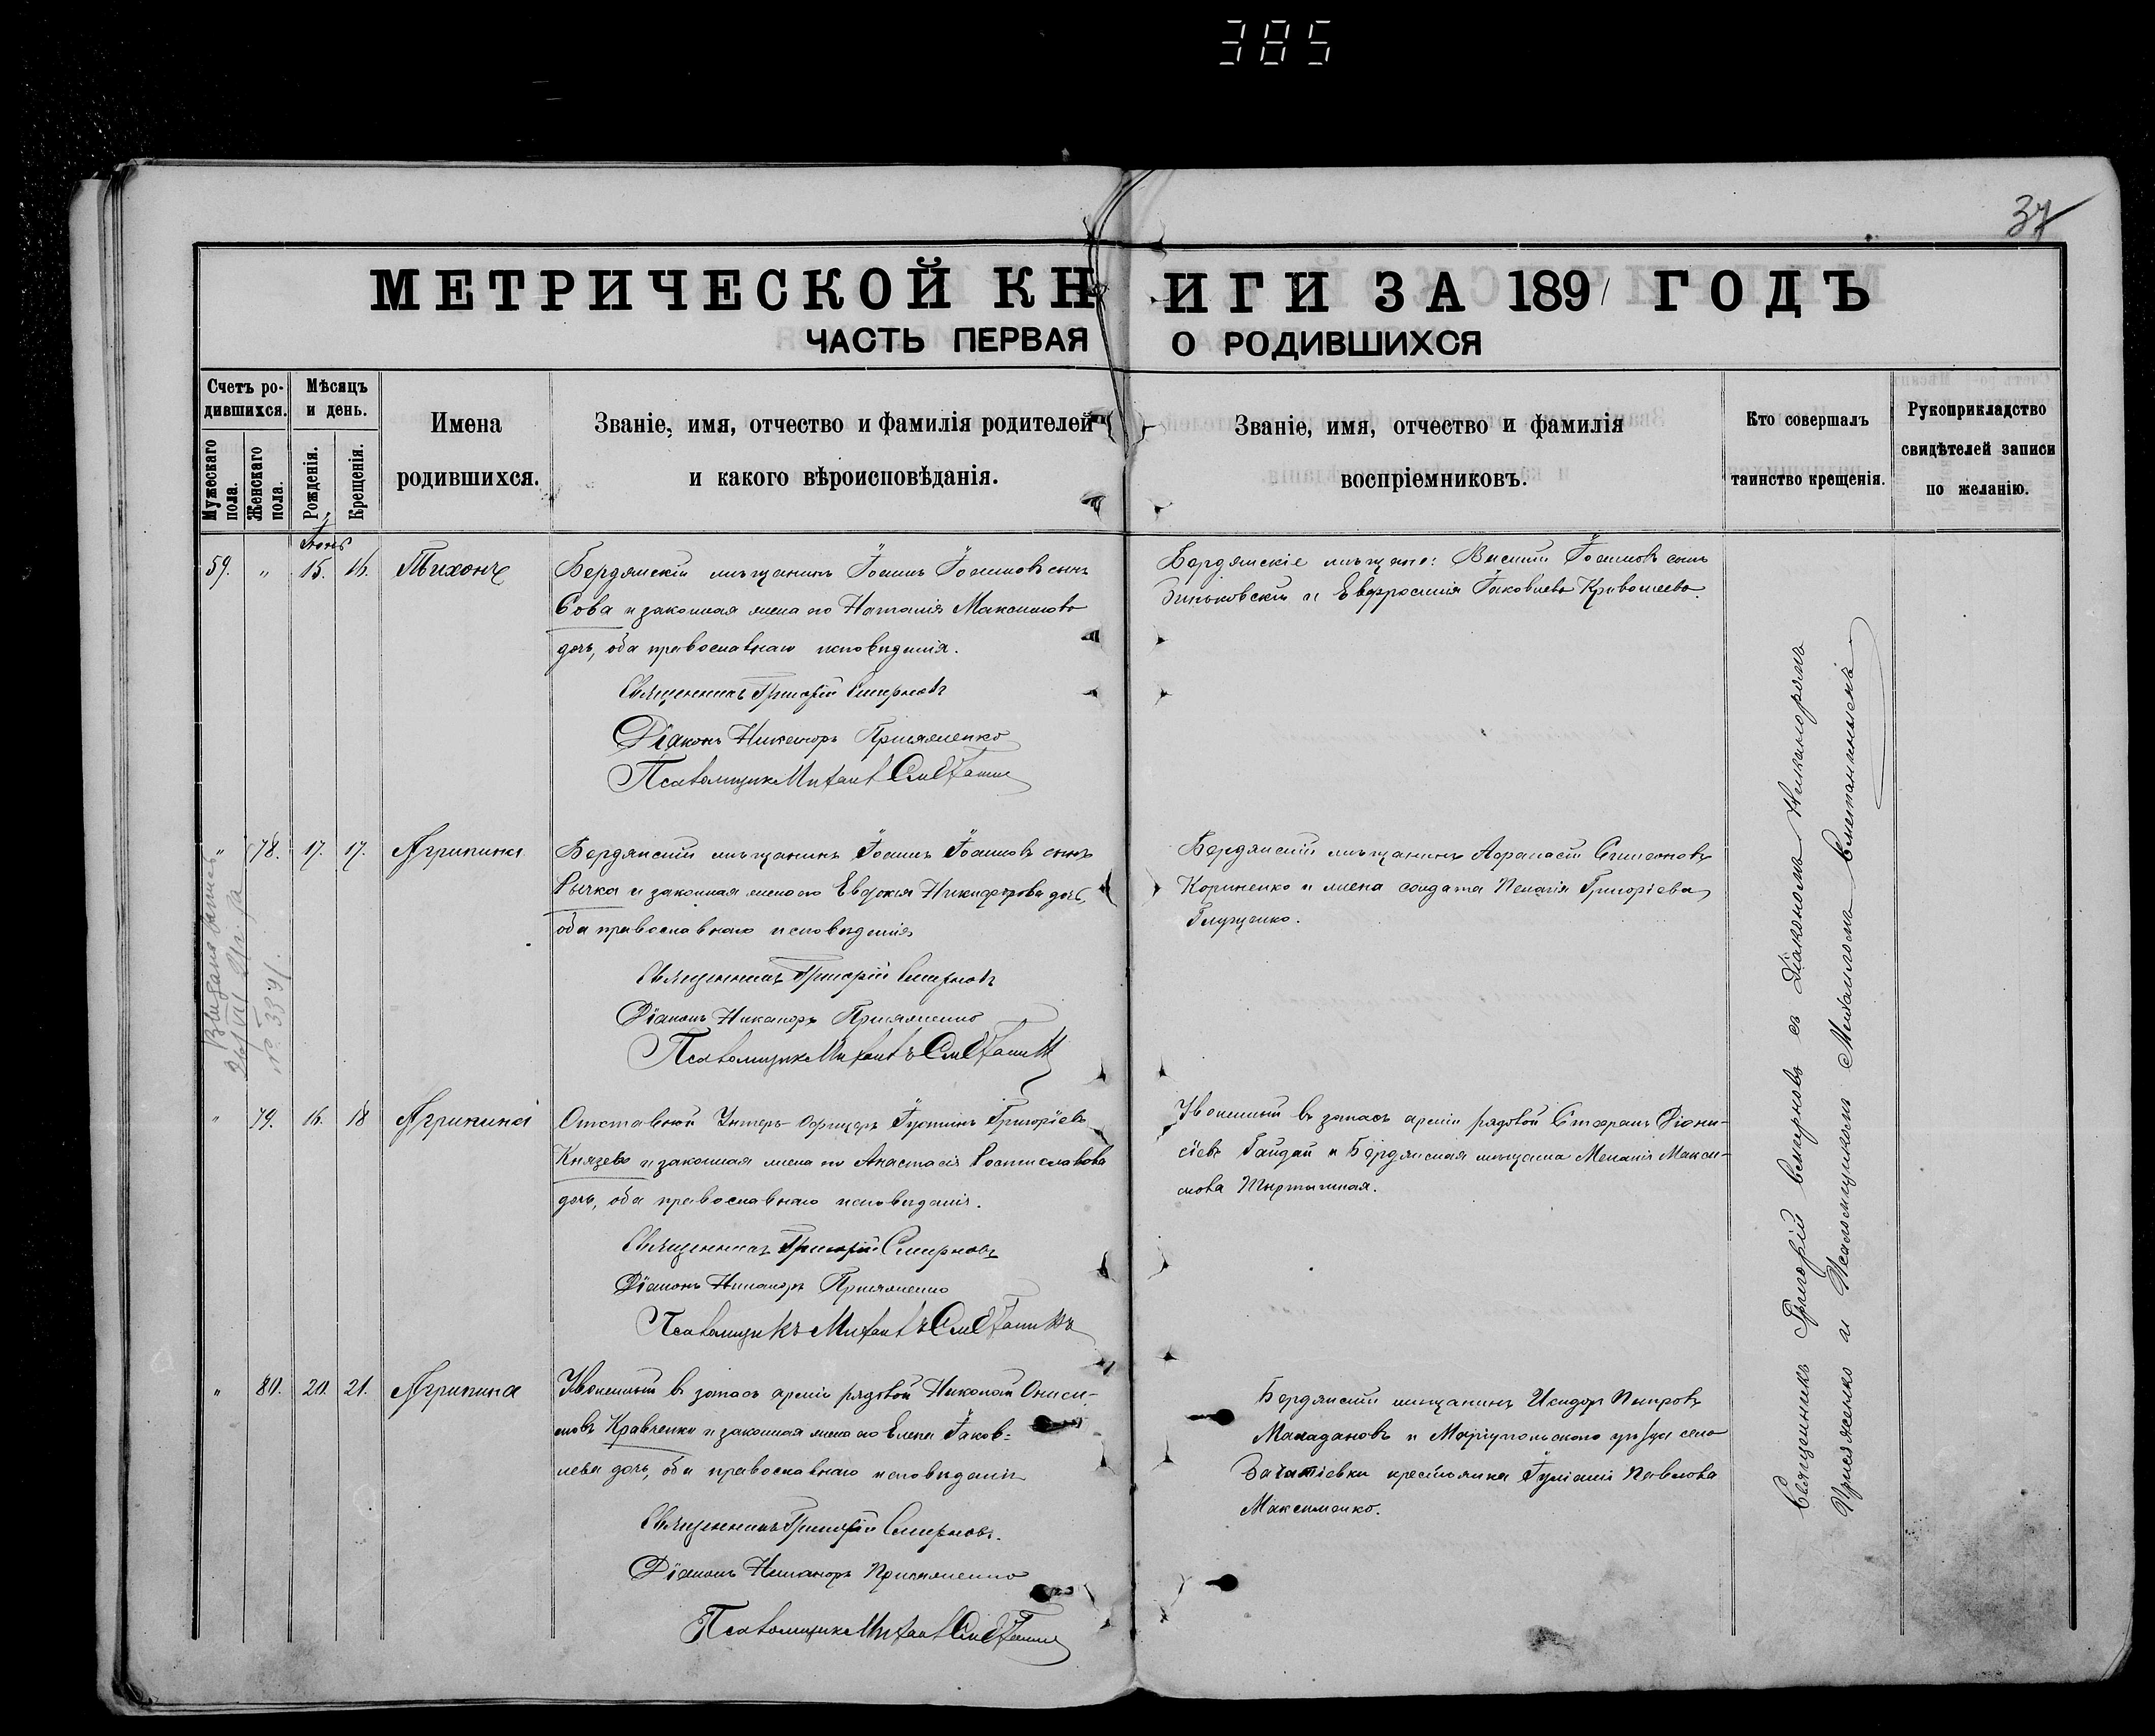 385
37
МЕТРИЧЕСКОЙ КНИГИ ЗА 1891 ГОДЪ
ЧАСТЬ ПЕРВАЯ О РОДИВШИХСЯ
Счетъ ро-
дившихся.
Мужескаго
пола.
Женскаго
пола.
Мѣсяцъ
и день.
Рожденія.
Крещенія.
Имена
родившихся.
Званіе, имя, отчество и фамилія родителей
и какого вѣроисповѣданія.
Званіе, имя, отчество и фамилія
воспріемниковъ.
Кто совершалъ
таинство крещенія.
Рукоприкладство
свидѣтелей записи
по желанію.
Іюнь
59. " 15. 16. Тихонъ
Бердянскій мѣщанинъ Іоаннъ Іоанновъ сынъ
Сова и законная жена его Наталія Максимова
дочь, оба православнаго исповѣданія.
Священникъ Григорій Смирновъ
Діаконъ Никаноръ Присяженко
Псаломщикъ Михаилъ
Бердянскіе мѣщане: Іоанновъ сынъ
и Евфросинія Іаковлева Кривошеева.
" 78. 17. 17. Агрипина
Бердянскій мѣщанинъ Іоаннъ Іоанновъ сынъ
и законная жена его Евдокія Никифорова дочь,
оба православнаго исповѣданія
Священникъ Григорій Смирновъ
Діаконъ Никаноръ Присяженко
Псаломщикъ Михаилъ
Бердянскій мѣщанинъ Афанасій Симеоновъ
Кориненко и жена солдата Пелагія Григоріева
Глущенко.
№ 3341.
" 79. 16. 18 Агрипина
Отставной Унтеръ-офицеръ Іустинъ Григоріевъ
Князевъ и законная жена его Анастасія Ростиславова
дочь, оба православнаго исповѣданія.
Священникъ Григорій Смирновъ
Діаконъ Никаноръ Присяженко
Псаломщикъ Михаилъ
Уволенный въ запасъ арміи рядовой Стефанъ Діони-
сіевъ Гайдай и Бердянская мѣщанка Меланія Макси-
мова
" 80. 20. 21. Агрипина
Уволенный въ запасъ арміи рядовой Николай Ониси-
мовъ Кравченко и законная жена его Елена Іаков-
лева дочь, оба православнаго исповѣданія
Священникъ Григорій Смирновъ.
Діаконъ Никаноръ Присяженко
Псаломщикъ Михаилъ
Бердянскій мѣщанинъ Исидоръ Петровъ
Маладановъ и Маріупольскаго уѣзда села
крестьянка Іуліанія Павлова
Максименко.
Священникъ Григорій Смирновъ съ Діакономъ Никаноромъ
Присяженко и Псаломщикомъ Михаиломъ